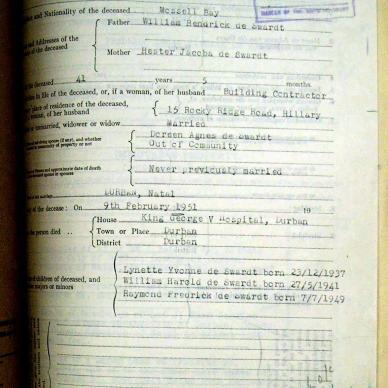 and Nationality of the deceased Wessell Bay
Father William Hendrick de Swardt
and Addresses of the
of the deceased
Mother Hester Jacoba de Swardt
the deceased 41 years 5 months.
in life of the deceased, or, if a woman, of her husband Building Contractor
place of residence of the deceased,
of her husband 15 Rocky Ridge Road, Hillary
unmarried, widower or widow Married
surviving spouse (if any), and whether
in community of property or not
Doreen Agnes de Swardt
Out of Community
and approximate date of death
spouse or spouses
Never previously married
DURBAN, Natal
of the decease: On 9th February 1951 19
House King George V Hospital, Durban
the person died .. Town or Place Durban
District Durban
of children of deceased, and
majors or minors
Lynette Yvonne de Swardt born 23/12/1937
William Harold de Swardt born 27/5/1941
Raymond Fredrick de Swardt born 7/7/1949